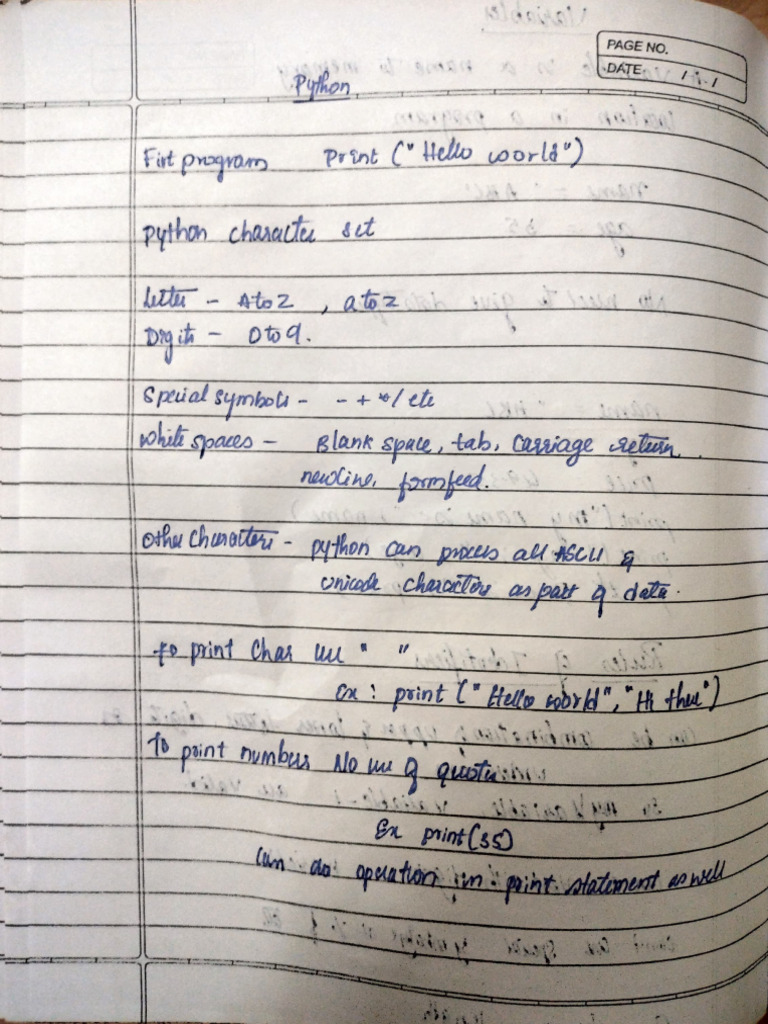 PAGE NO.
DATE / /
Python
Firt program print ("Hello world")
python character set
Letter - A to Z , a to z
Digits - 0 to 9.
Special symbols - - + * / etc
White spaces - Blank space, tab, Carriage return
newline, formfeed.
Other characters - python can process all ASCII &
unicode characters as part of data.
to print Char use " "
Ex : print ("Hello world", "Hi there")
To print numbers No use of quotes
Ex print(35)
Can do operation in print statement as well